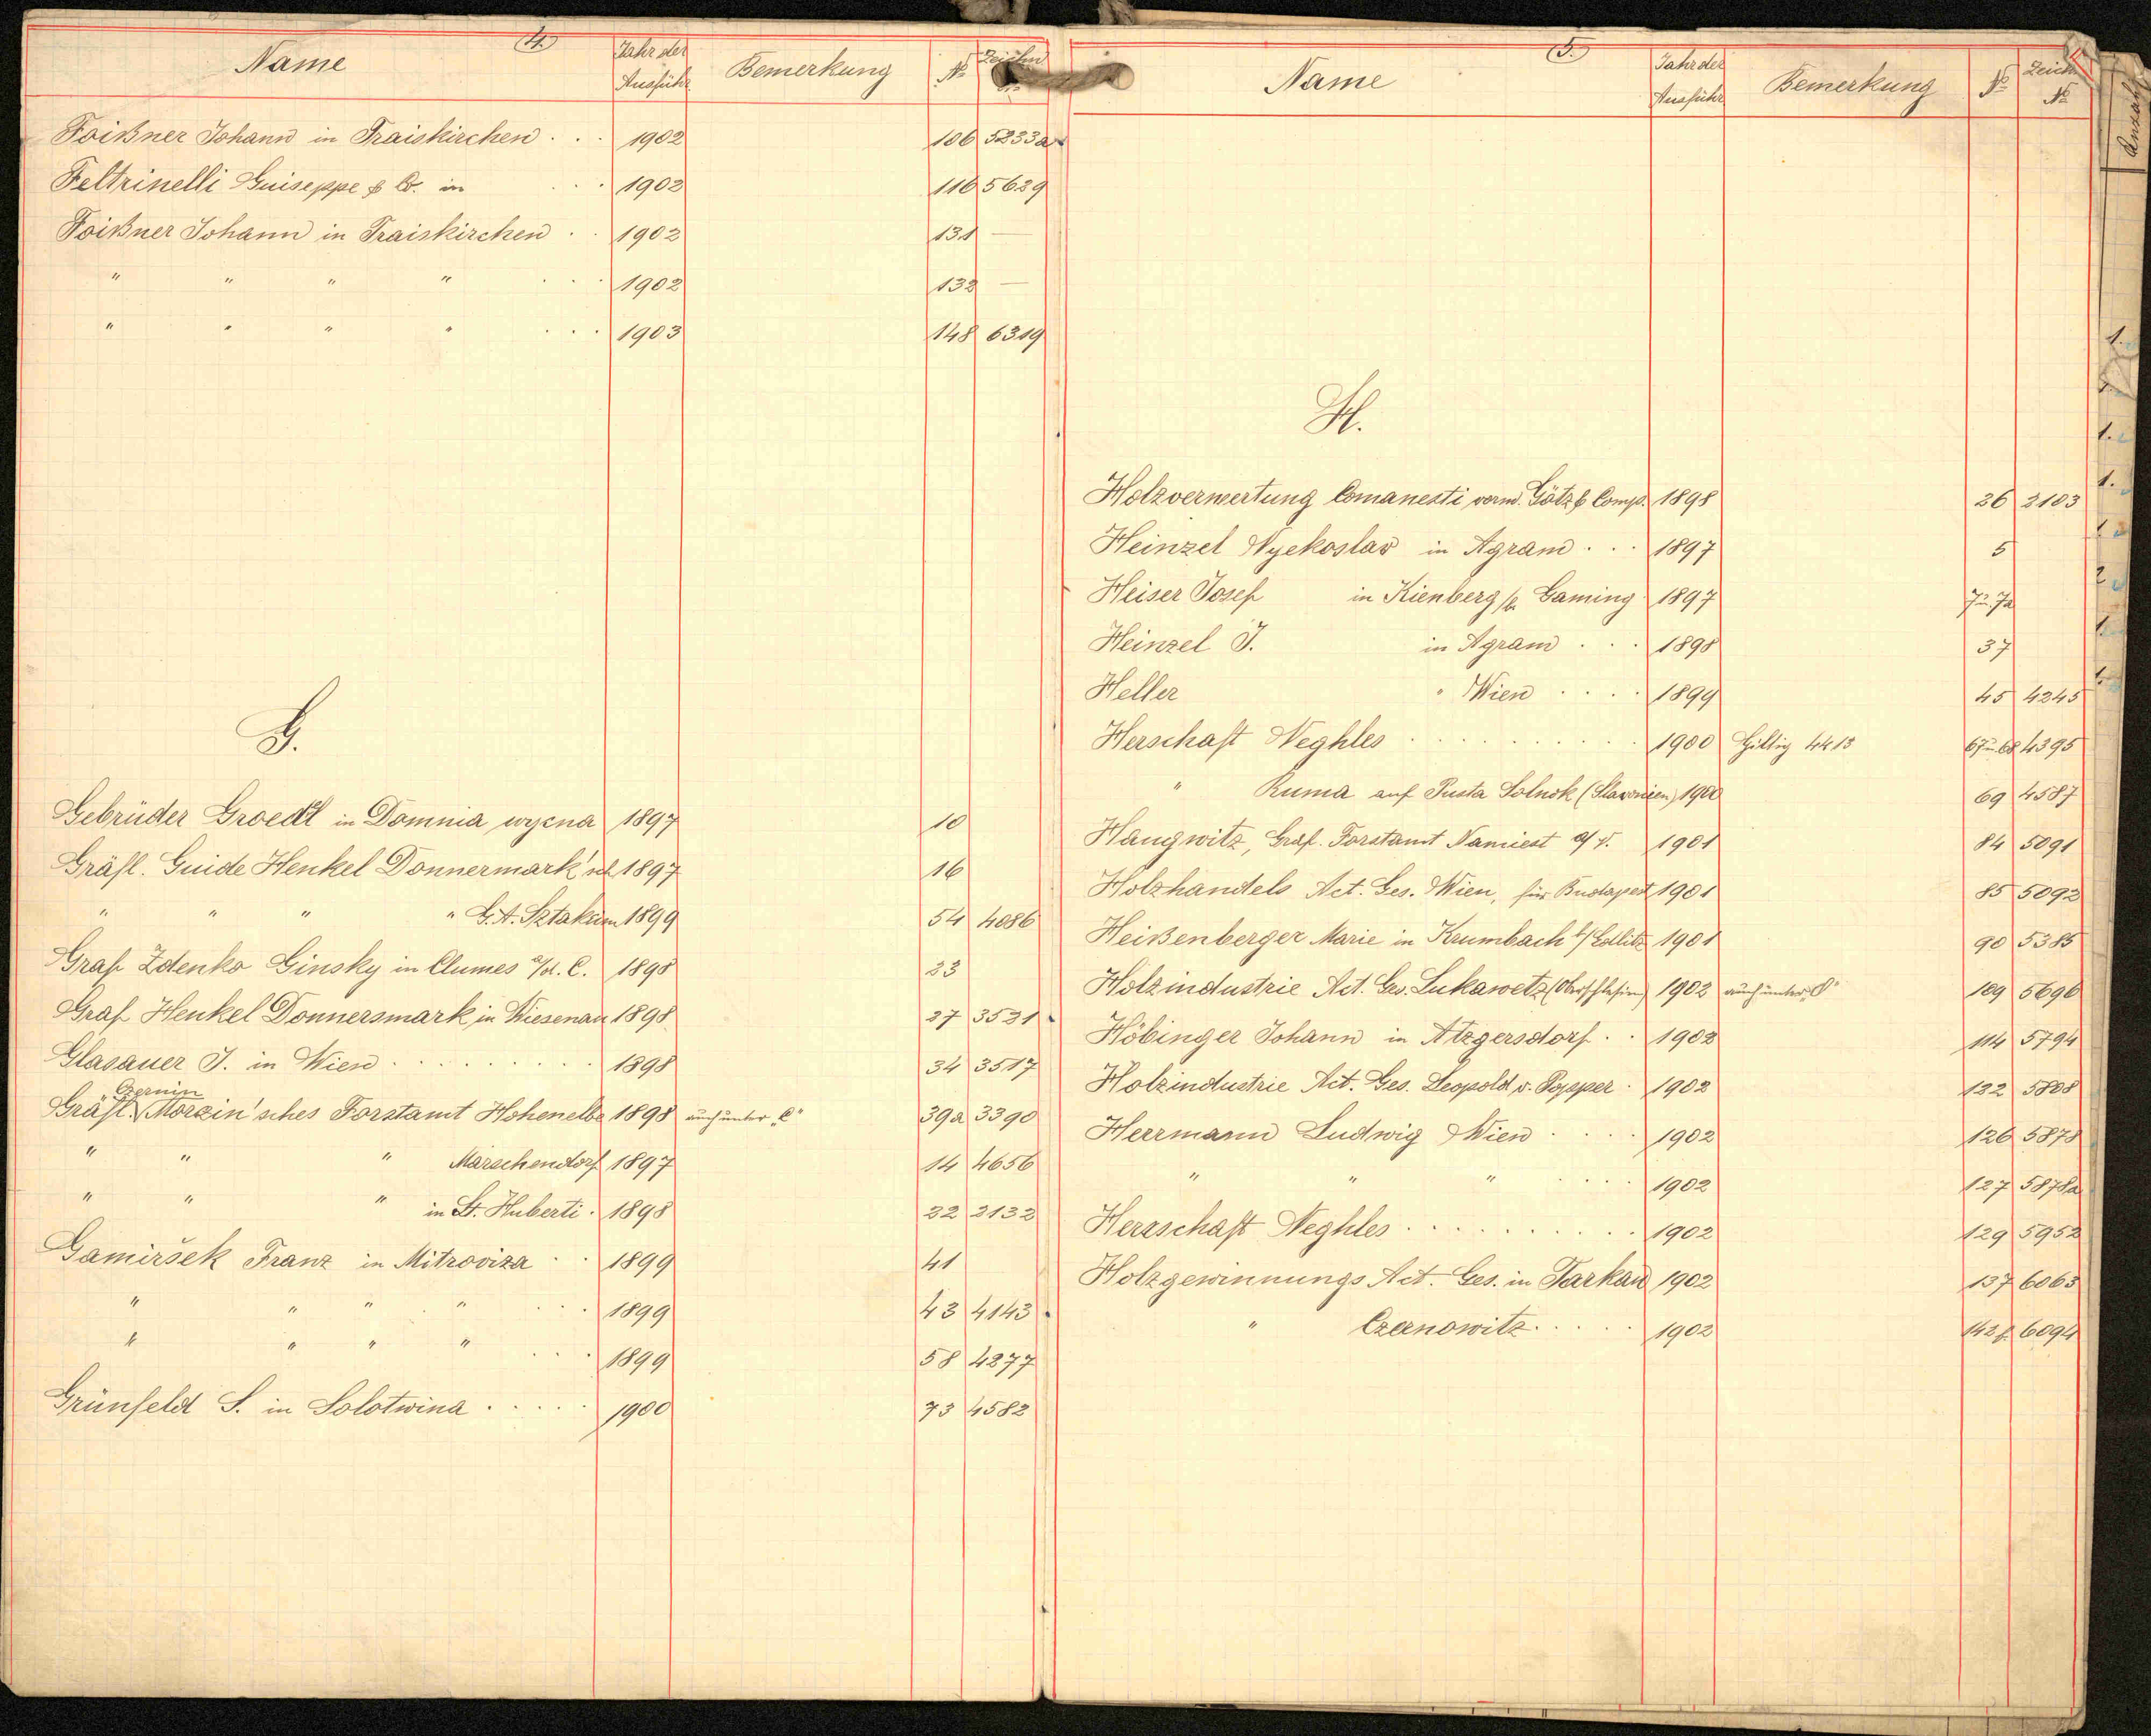 4.
Name Jahr der Ausführ. Bemerkung № Zeichn
Foißner Johann in Traiskirchen . . . 1902 106 5233a
Feltrinelli Guiseppe & Co. in . . . 1902 116 5629
Foißner Johann in Traiskirchen . . 1902 131 —
" " " " . . . 1902 132 —
" " " " . . . 1903 148 6319
G.
Gebrüder Groedl in Domnia wyzna 1897 10
Gräfl. Guido Henkel Donnermark'sch 1897 16
" " " " G. A. Sztakum 1899 54 4086
Graf Zdenko Ginsky in Clumes a/d. C. 1898 23
Graf Henkel Donnersmark in Wiesenau 1898 27 3521
Glasauer J. in Wien . . . . . . . 1898 34 3517
Czernin
Gräfl. Morzin'sches Forstamt Hohenelbe 1898 auch unter „C" 39a 3390
" " " Marschendorf 1897 14 4656
" " " in St. Huberti . 1898 22 2132
Gamiršek Franz in Mitroviza . . 1899 41
" " " " . . . 1899 43 4143
" " " " . . . 1899 58 4277
Grünfeld S. in Solotwina . . . . . 1900 73 4582
5.
Name Jahr der Ausführ. Bemerkung № Zeich №
Anzahl
H.
Holzverwertung Comanesti vorm. Götz & Comp. 1898 26 2103
Heinzel Vyekoslav in Agram . . . 1897 5
Heiser Josef in Kienberg b. Gaming 1897 7u.7a
Heinzel J. in Agram . . . 1898 37
Heller " Wien . . . . 1899 45 4245
Herschaft Neghles . . . . . . . . . 1900 Giltig 4413 67u68 4395
" Ruma auf Pusta Solnok (Slavonien) 1900 69 4587
Haugwitz, Gräf. Forstamt Namiest a/ 1901 84 5091
Holzhandels Act. Ges. Wien, für Budapest 1901 85 5092
Heißenberger Marie in Krumbach b/ Edlitz 1901 90 5385
Holzindustrie Act. Ges. Lukawetz (Oberschlesien) 1902 auch unter 109 5696
Höbinger Johann in Atzgersdorf . . 1902 114 5794
Holzindustrie Act. Ges. Leopold v. Popper . 1902 122 5808
Herrmann Ludwig Wien . . . . 1902 126 5878
" " " . . . . 1902 127 5878a
Herrschaft Neghles . . . . . . . . . 1902 129 5952
Holzgewinnungs Act. Ges. in Tarkau 1902 137 6063
" Czernowitz . . . . . 1902 142 6094